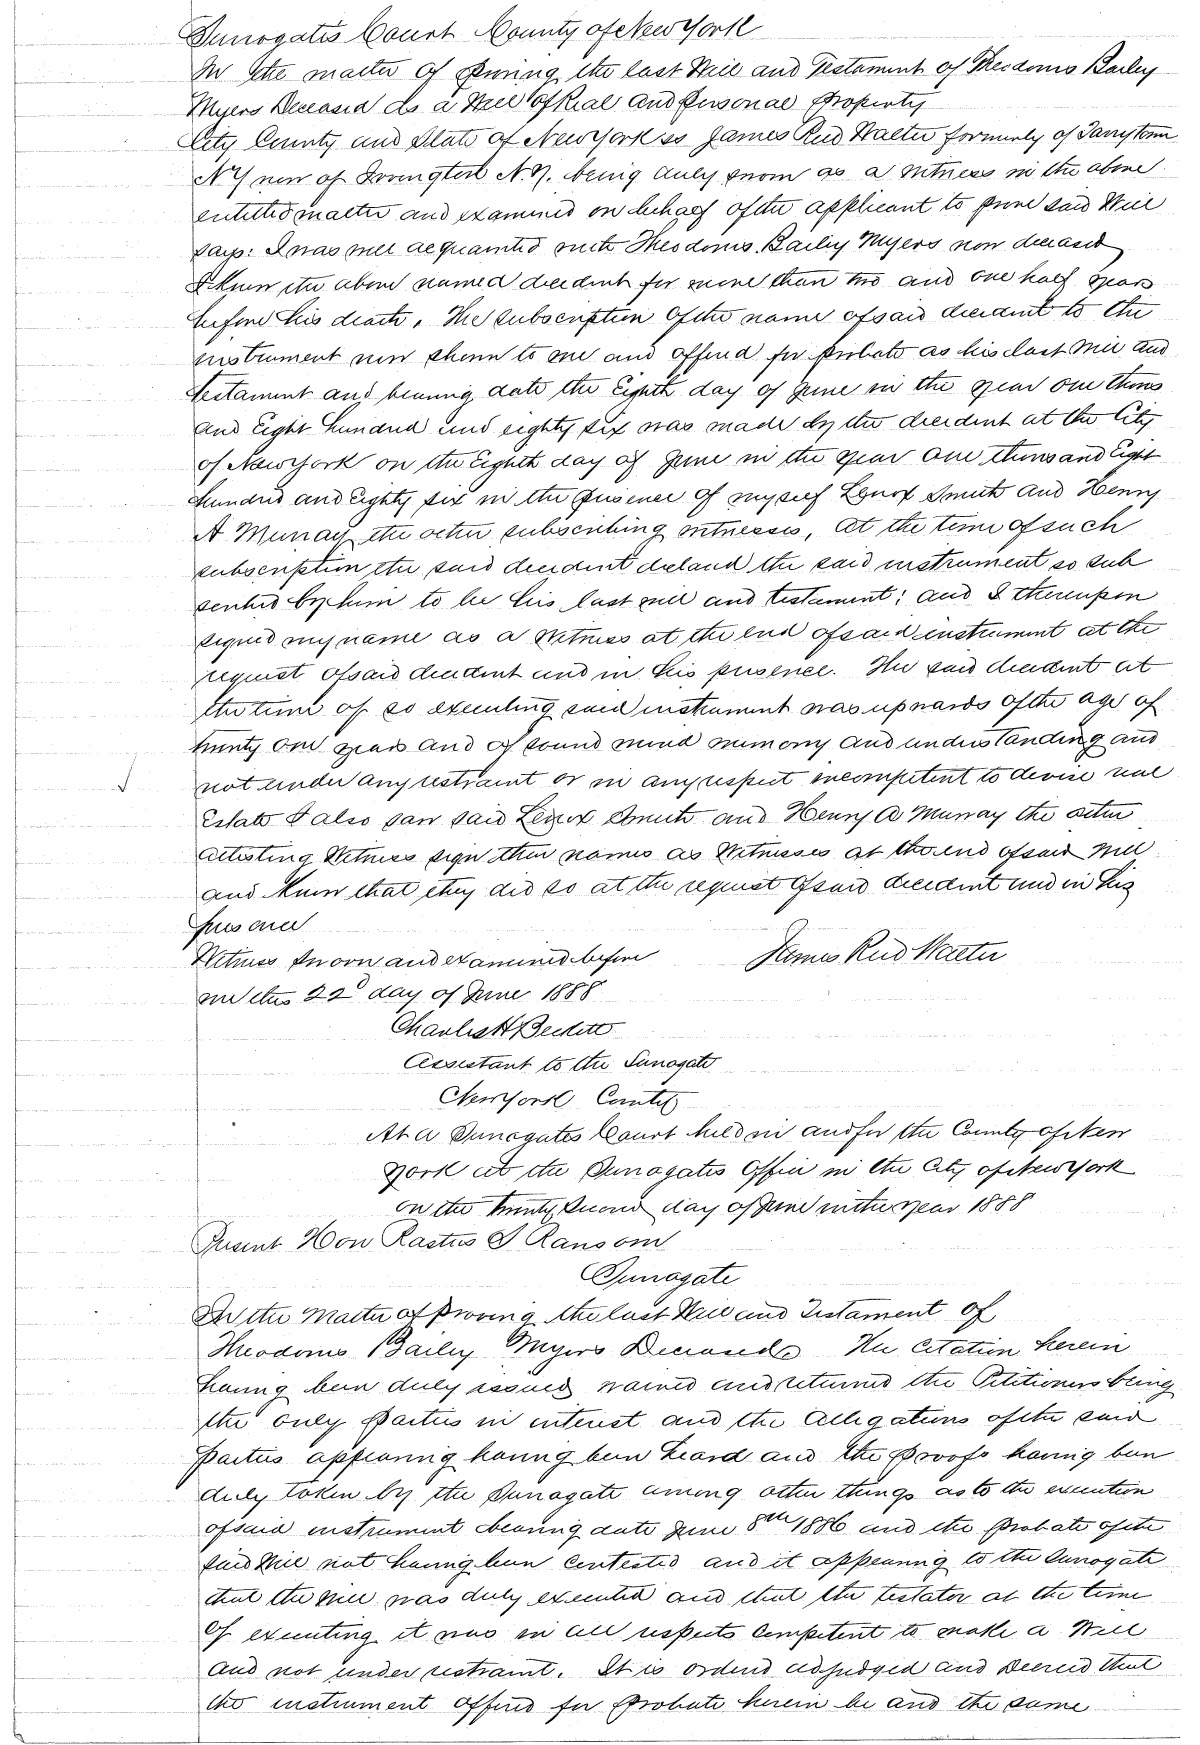 Surrogates Court County of New York
In the matter of Proving the last Will and Testament of Theodorus Bailey
Myers Deceased as a Will of Real and Personal Property
City County and State of New York ss James Reid Walter formerly of Tarrytown
NY now of Irvington N.Y. being duly sworn as a witness in the above
entitled matter and examined on behalf of the applicant to prove said Will
says: I was well acquainted with Theodorus Bailey Myers now deceased
I knew the above named decedent for more than two and one half years
before his death. The subscription of the name of said decedent to the
instrument now shown to me and offered for probate as his last will and
testament and bearing date the Eighth day of June in the year one thous
and Eight hundred and eighty six was made by the decedent at the City
of New York on the Eighth day of June in the year one thousand Eight
hundred and Eighty six in the presence of myself Lenox Smith and Henry
A Murray the other subscribing witnesses, at the time of such
subscription the said decedent declared the said instrument so sub
scribed by him to be his last will and testament; and I thereupon
signed my name as a witness at the end of said instrument at the
request of said decedent and in his presence. The said decedent at
the time of so executing said instrument was upwards of the age of
twenty one years and of sound mind memory and understanding and
not under any restraint or in any respect incompetent to devise real
Estate I also saw said Lenox Smith and Henry A Murray the other
attesting Witness sign their names as Witnesses at the end of said will
and knew that they did so at the request of said decedent and in his
presence
Witness sworn and examined before James Reid Walter
me this 22d day of June 1888
Charles H Beckett
Assistant to the Surrogate
New York County
At a Surrogates Court held in and for the County of New
York at the Surrogates Office in the City of New York
on the twenty second day of June in the year 1888
Present Hon Rastus S Ransom
Surrogate
In the Matter of Proving the last Will and Testament of
Theodorus Bailey Myers Deceased The citation herein
having been duly issued waived and returned the Petitioners being
the only Parties in interest and the Allegations of the said
Parties appearing having been heard and the Proofs having been
duly taken by the Surrogate among other things as to the execution
of said instrument bearing date June 8th 1886 and the Probate of the
said Will not having been contested and it appearing to the Surrogate
that the will was duly executed and that the testator at the time
of executing it was in all respects competent to make a Will
and not under restraint. It is ordered adjudged and Decreed that
the instrument offered for Probate herein be and the same